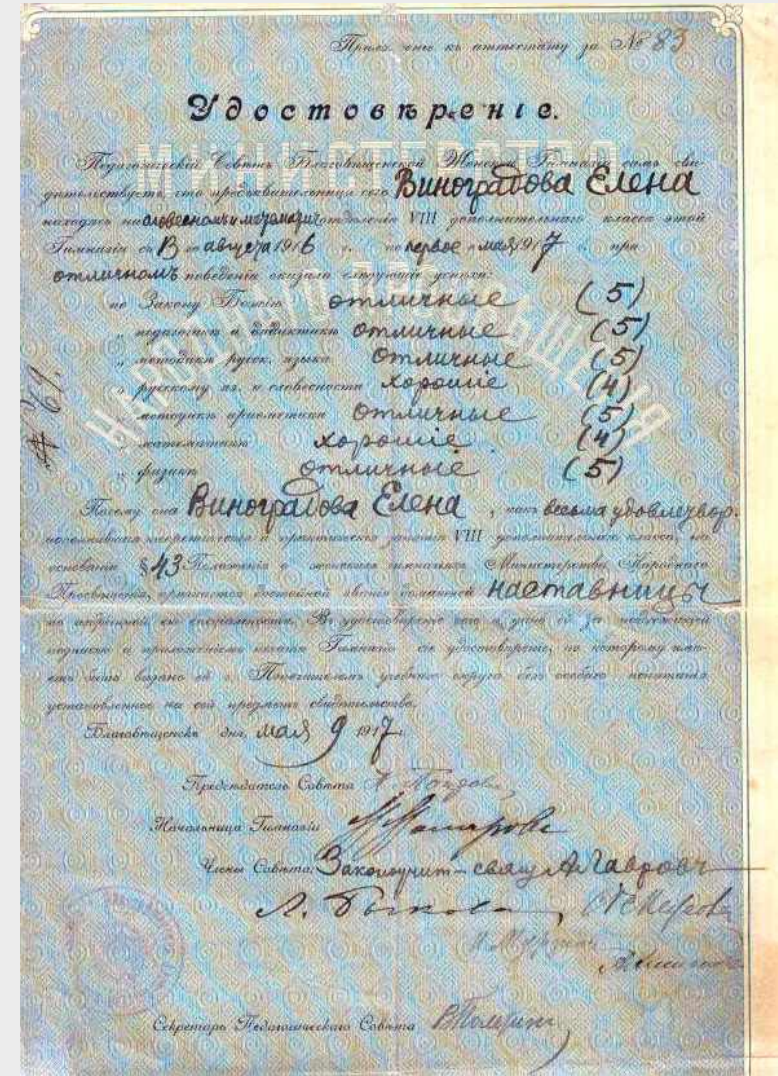 Прилож͏еніе къ аттестату за № 83
Удостовѣреніе.
МИНИСТЕРСТВО
НАРОДНАГО ПРОСВѢЩЕНІЯ
Педагогическій Совѣтъ Благовѣщенской Женской Гимназіи симъ сви-
дѣтельствуетъ, что предъявительница сего Виноградова Елена
находясь на отдѣленіи VIII дополнительнаго класса этой
Гимназіи съ августа 1916 г. по первое мая 1917 г. при
отличномъ поведеніи оказала слѣдующіе успѣхи:
по Закону Божію отличные (5)
„ педагогикѣ и дидактикѣ отличные (5)
„ методикѣ русск. языка отличные (5)
„ русскому яз. и словесности хорошіе (4)
„ методикѣ ариѳметики отличные (5)
„ математикѣ хорошіе (4)
„ физикѣ отличные (5)
Посему она Виноградова Елена, какъ весьма удовлетвор.
исполнившая теоретическія и практическія занятія VIII дополнительнаго класса, на
основаніи § 43 Положенія о женскихъ гимназіяхъ Министерства Народнаго
Просвѣщенія, признается достойной званія домашней наставницы
по избранной ею спеціальности. Въ удостовѣреніе чего и дано ей за надлежащей
подписью и приложеніемъ печати Гимназіи сіе удостовѣреніе, по которому имѣ-
етъ быть выдано ей г. Попечителемъ учебнаго округа безъ особаго испытанія
установленное на сей предметъ свидѣтельство.
Благовѣщенскъ дня, мая 9 1917 г.
Предсѣдатель Совѣта
Начальница Гимназіи
Члены Совѣта: Законоучит. свящ.
Секретарь Педагогическаго Совѣта